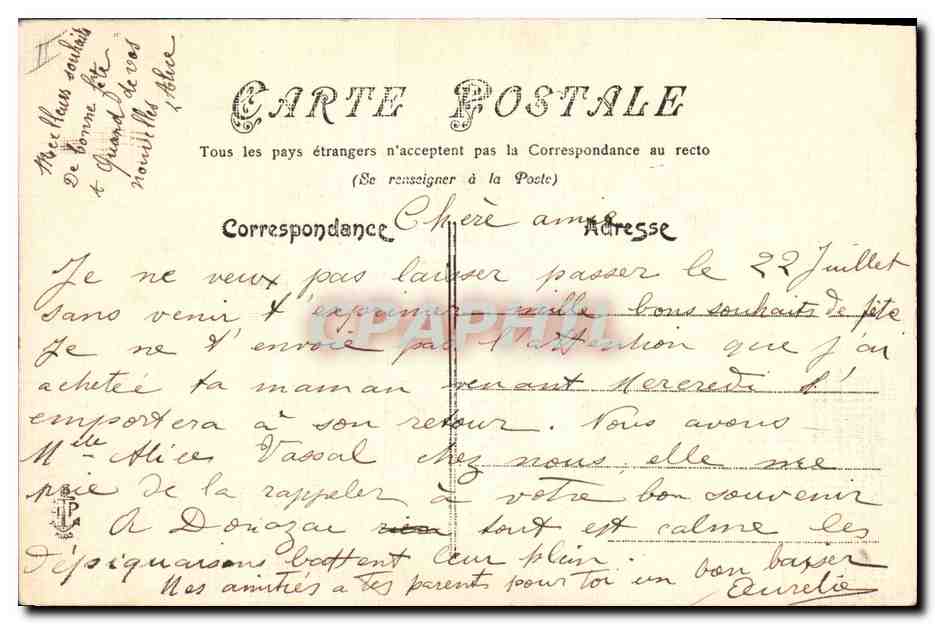 Meilleurs souhaits
De bonne fête
& Quand de vos
nouvelles
Alice
CARTE POSTALE
Tous les pays étrangers n'acceptent pas la Correspondance au recto
(Se renseigner à la Poste)
Correspondance
Adresse
Chère amie
Je ne veux pas laisser passer le 22 Juillet
sans venir t'exprimer mille bons souhaits de fête
Je ne t'envoie pas l'attention que j'ai
achetée ta maman venant Mercredi t'
emportera à son retour. Nous avons
Melle Alice Vassal chez nous, elle me
prie de la rappeler à votre bon souvenir
A Douazac rien tout est calme les
dépiquaisons battent leur plein.
Mes amitiés a tes parents pour toi un bon baiser
Aurelie
CPAPHIL